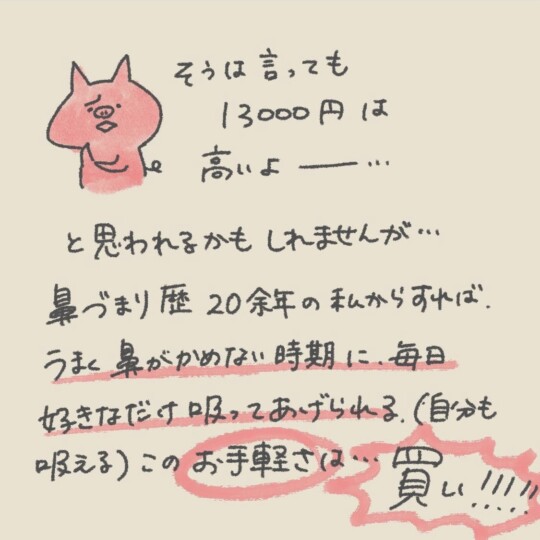 そうは言っても
13000円は
高いよ――…
と思われるかもしれませんが…
鼻づまり歴20余年の私からすれば、
うまく鼻がかめない時期に、毎日
好きなだけ吸ってあげられる、(自分も
吸える)このお手軽さは…買い!!!!!